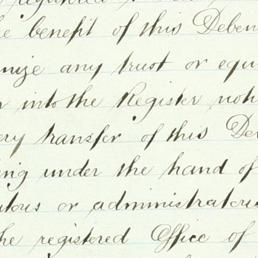 he benefit of this Deben
nize any trust or equi
r into the Register not
ery transfer of this De
ing under the hand of
utors or administrators
he registered Office of